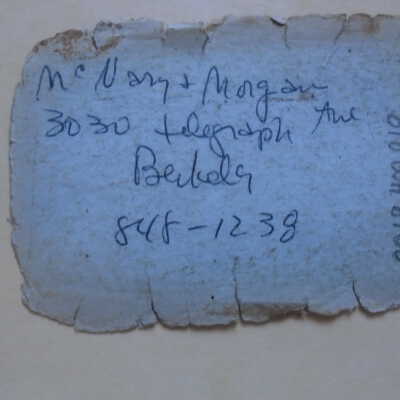 McNary + Morgan
3030 telegraph Ave
Berkeley
848-1238